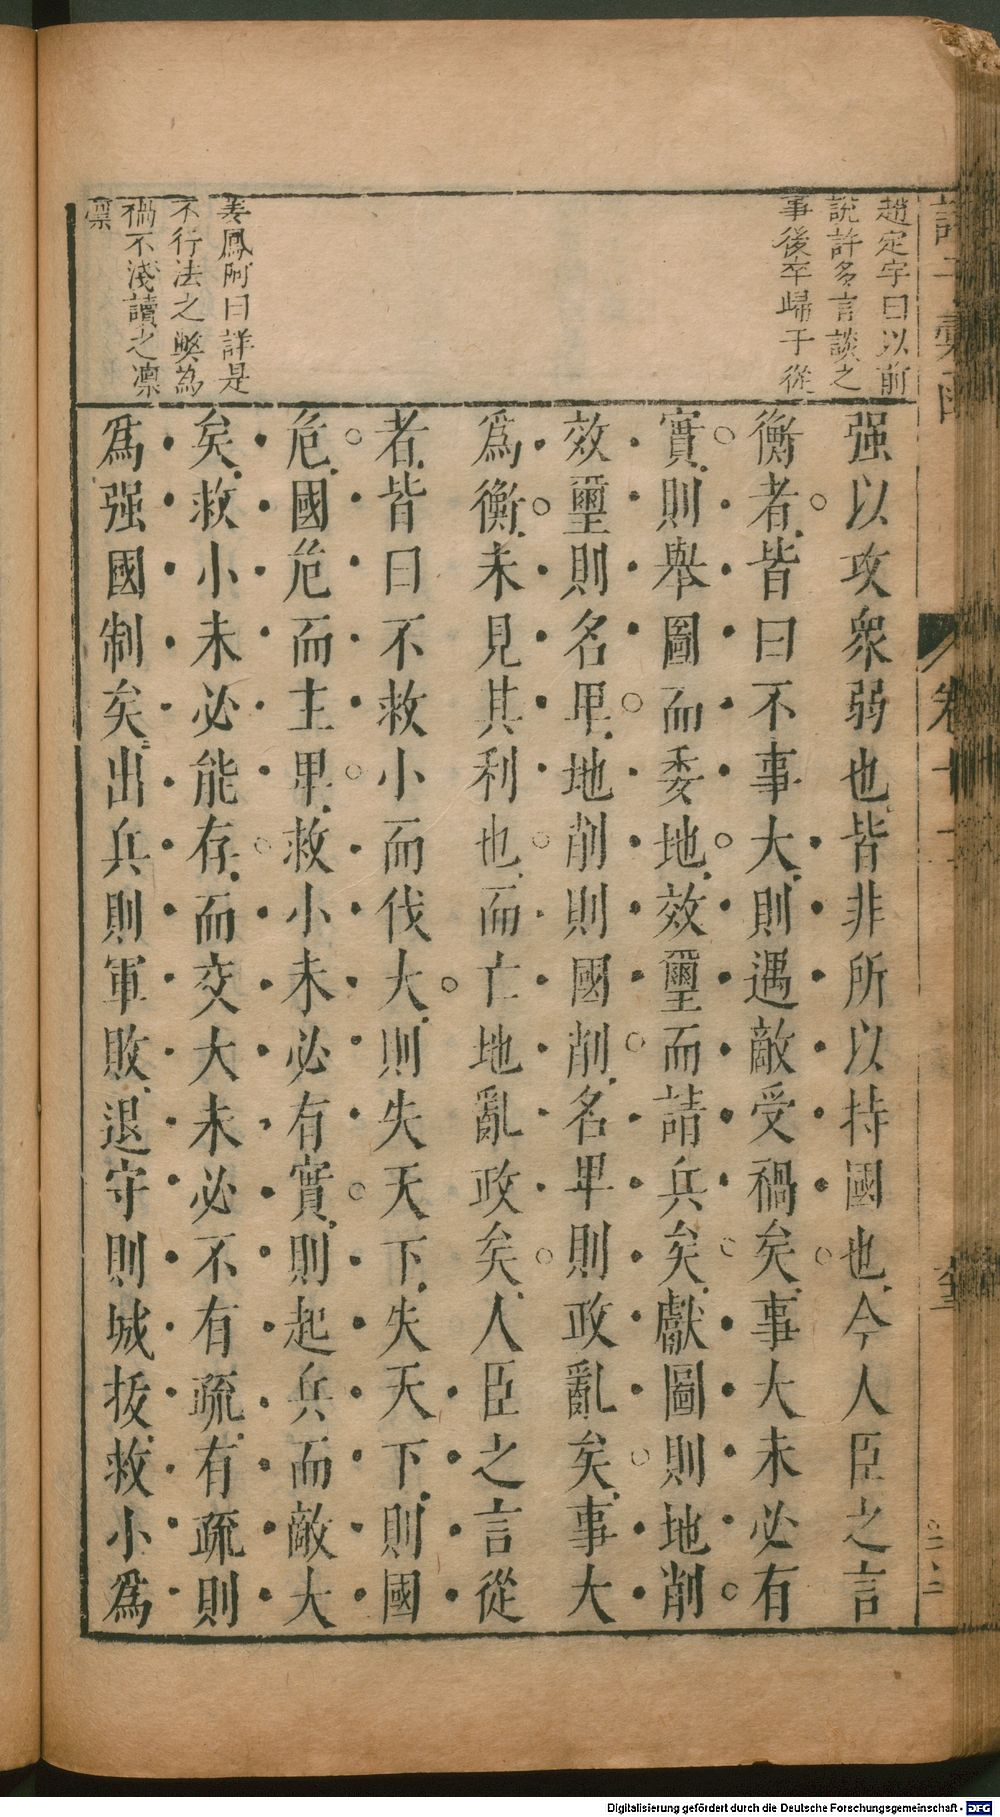 趙定宇曰以前
說許多言談之
事後卒歸于從
姜鳳阿曰詳是
不行法之弊為
禍不淺讀之凛
凛
强以攻衆弱也皆非所以持國也今人臣之言
衡者皆曰不事大則遇敵受禍矣事大未必有
實則舉圖而委地效璽而請兵矣獻圖則地削
效璽則名卑地削則國削名卑則政亂矣事大
爲衡未見其利也而亡地亂政矣人臣之言從
者皆曰不救小而伐大則失天下失天下則國
危國危而主卑救小未必有實則起兵而敵大
矣救小未必能存而交大未必不有疏有疏則
爲强國制矣出兵則軍敗退守則城拔救小爲
卷十
Digitalisierung gefördert durch die Deutsche Forschungsgemeinschaft - DFG